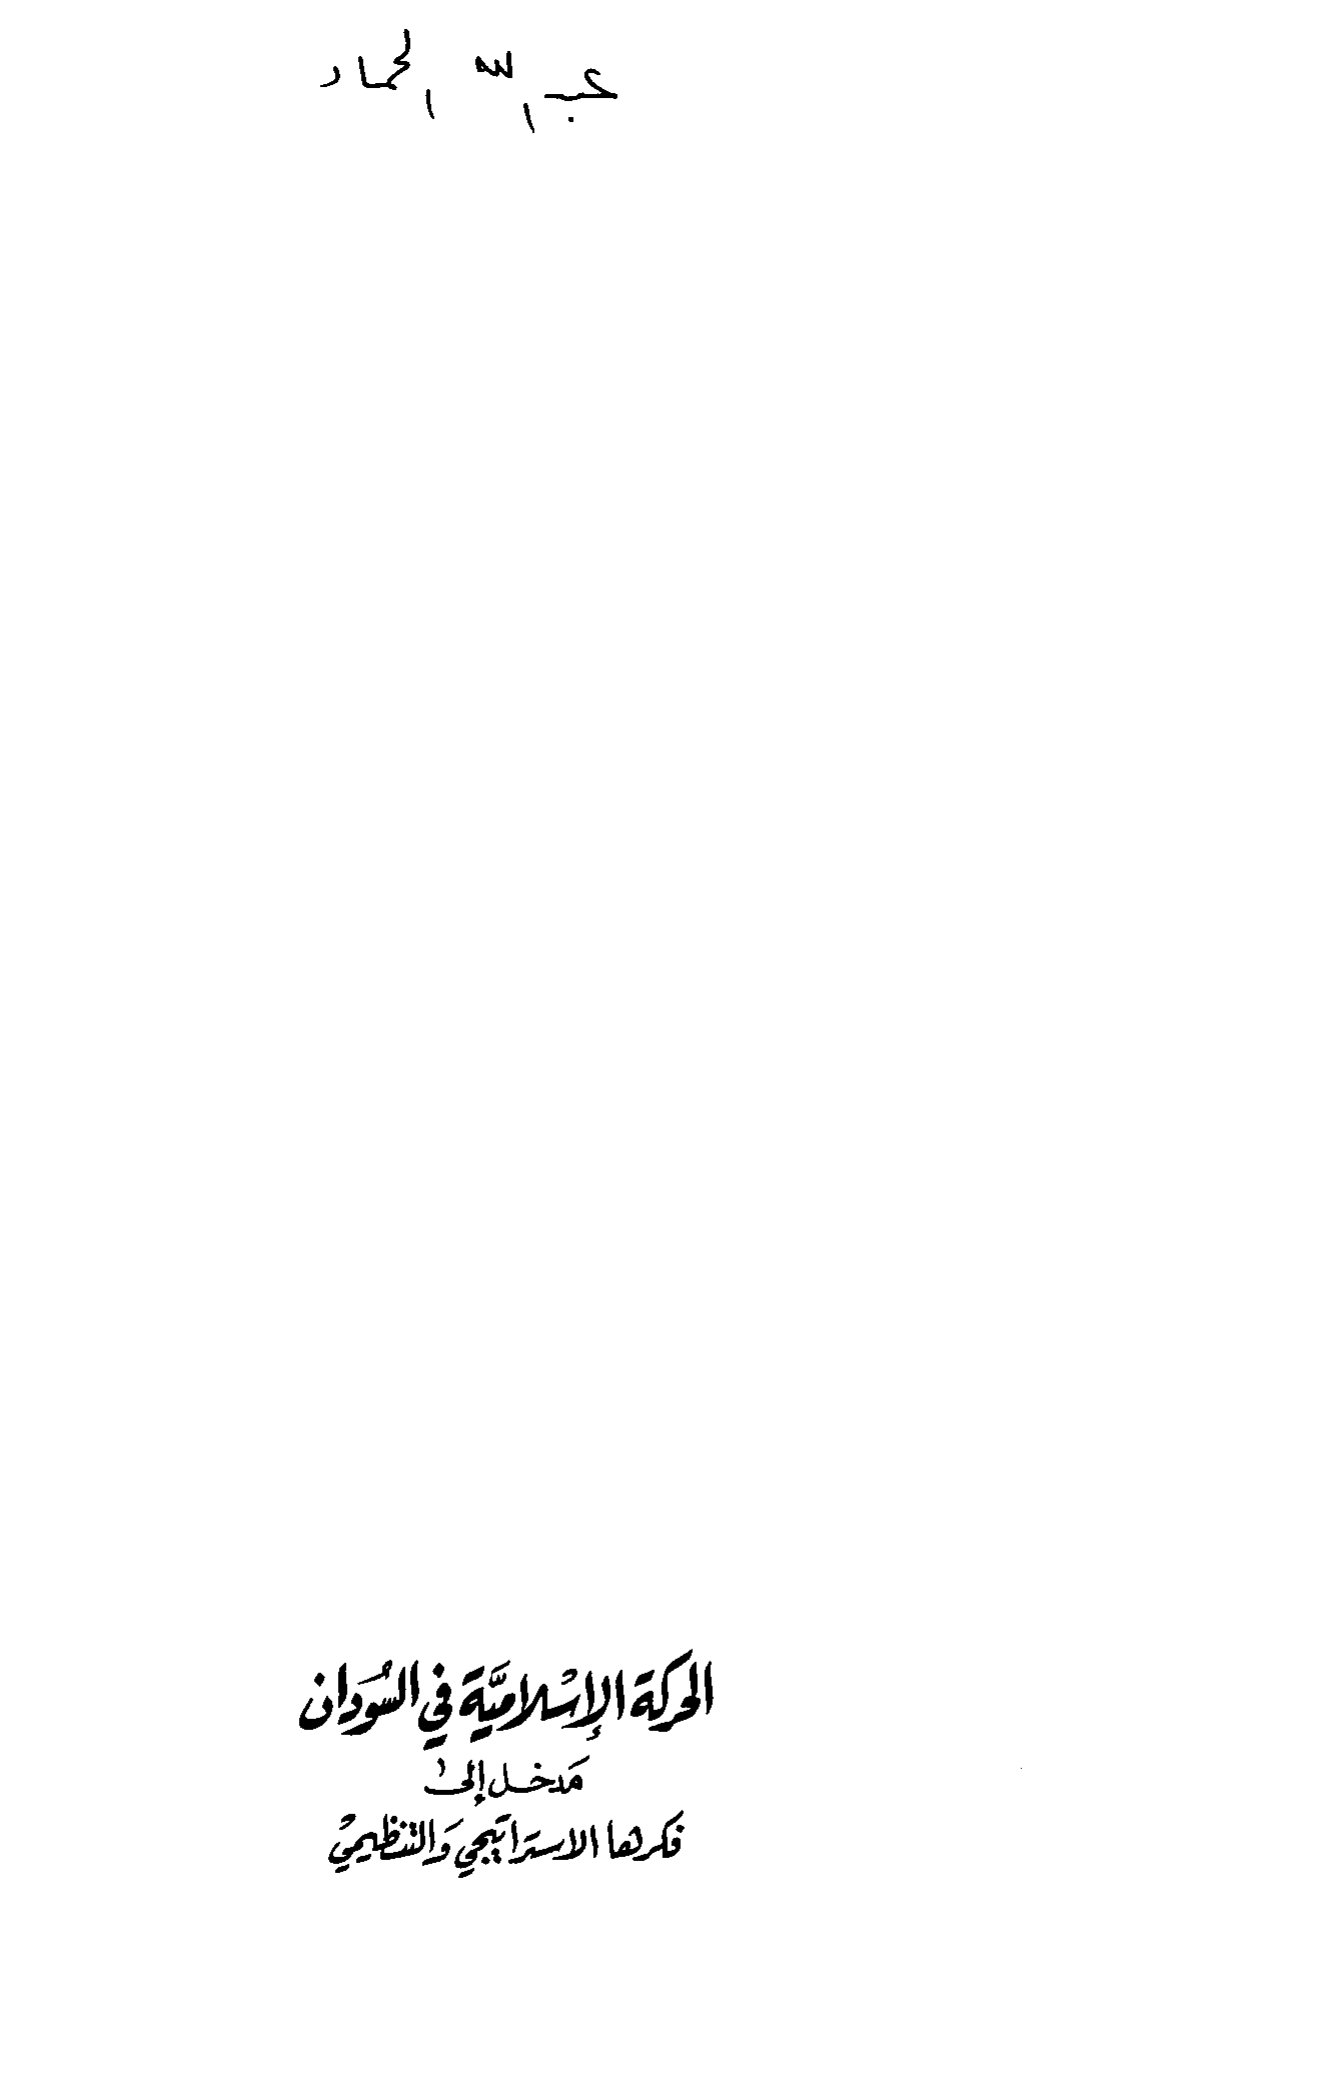 عبد الله الحماد
الحركة الإسْلاميَّة في السُودَان
مَدخل إلى
فكرها الاستراتيجي وَالتنظيميْ